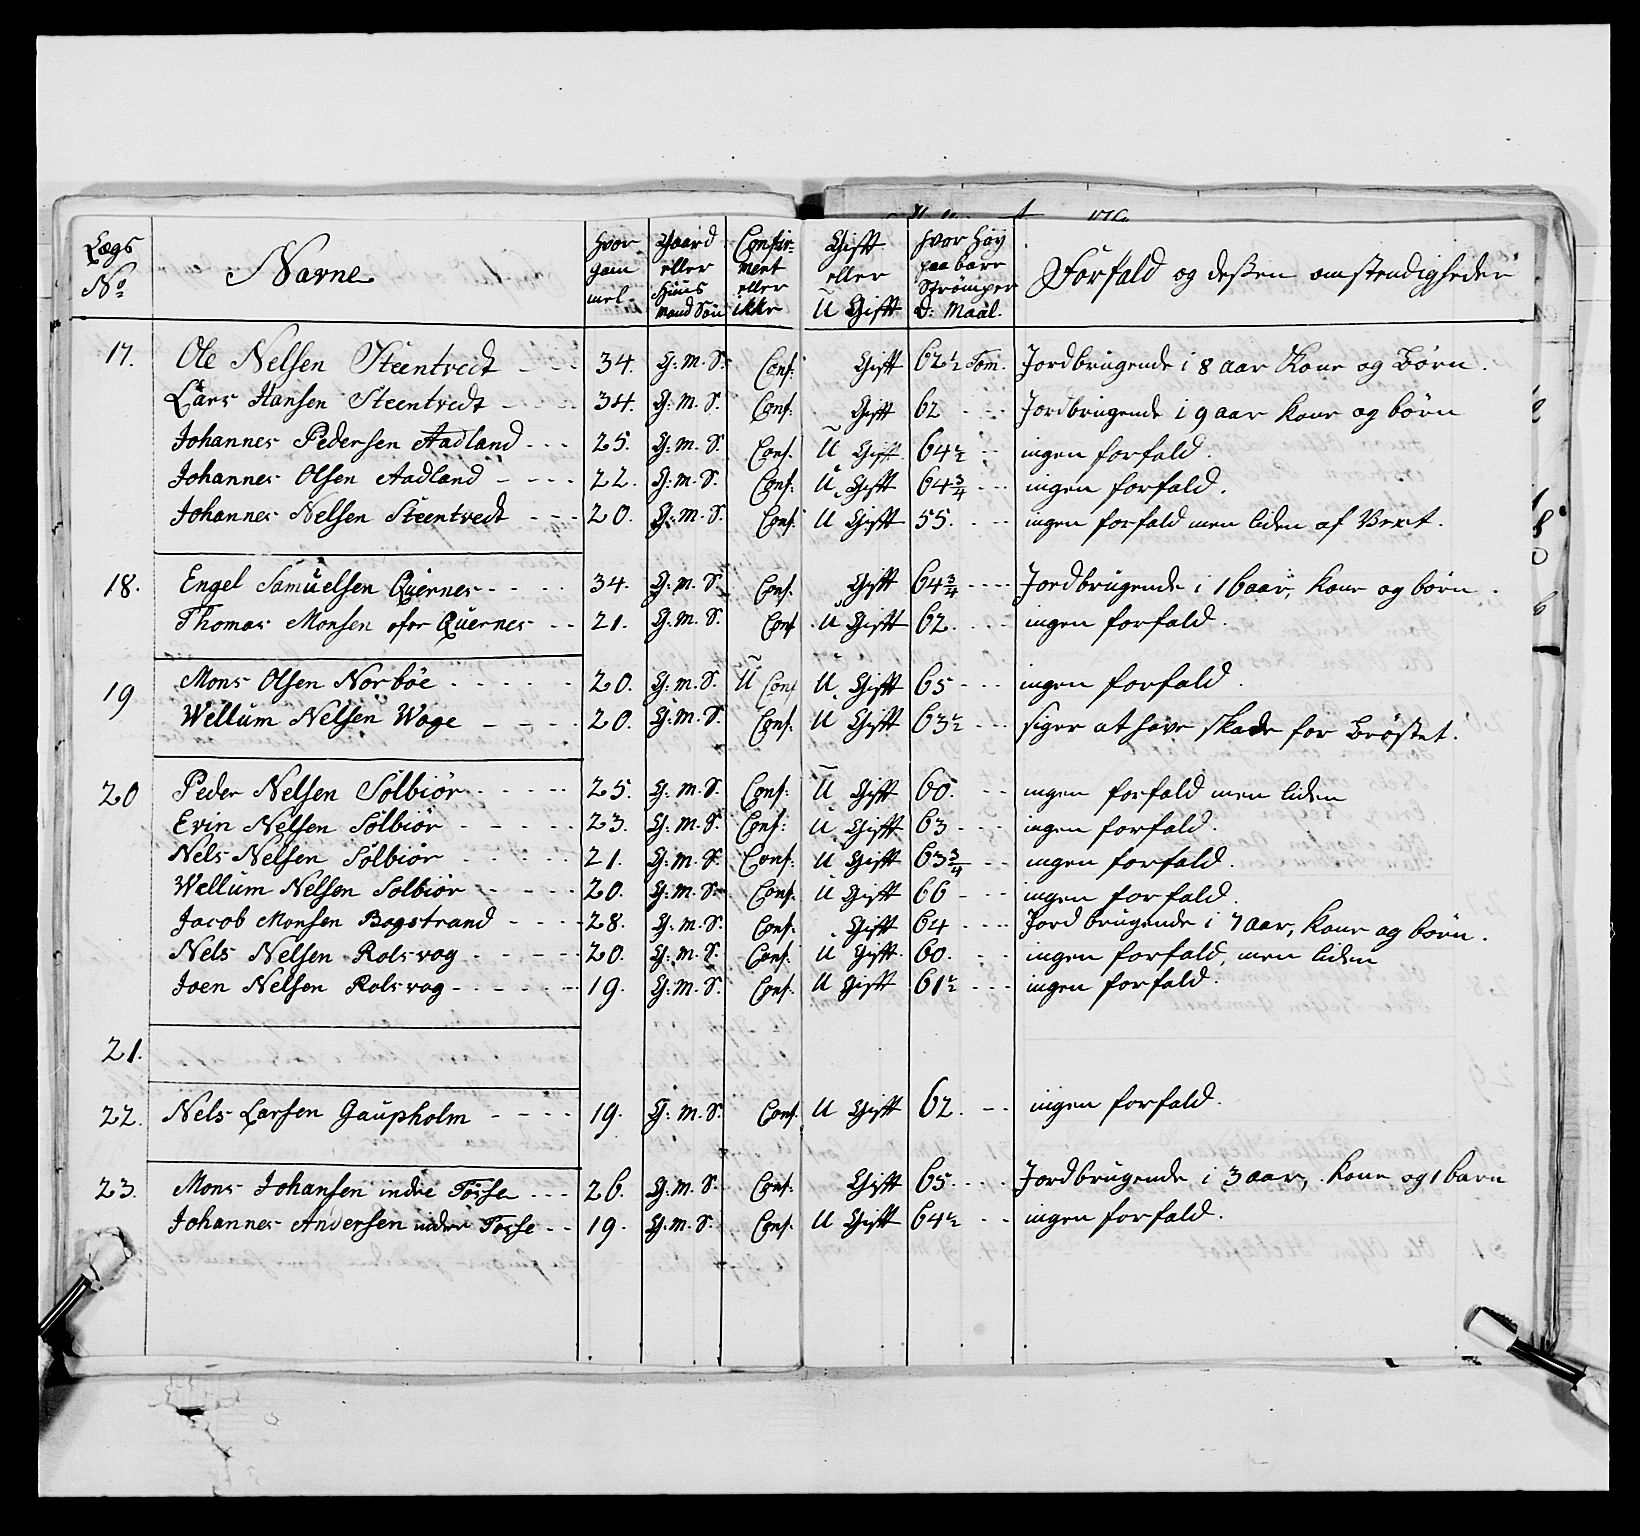 Lægs No Navne hvor gam mel. Gaard eller Huus mand Søn Confir ment eller ikke Gift eller U Gift hvor Høy paa bare Strømper D: Maal. Forfald og deßen omstendigheder
17. Ole Nelsen Steentvedt - - 34. G: M: S. Conf: Gift 62½ Tom. Jordbrugende i 8 aar Kone og Børn.
Lars Hansen Steentvedt - - - 34. G: M. S. Conf: Gift 62 - - - Jordbrugende i 9 aar Kone og børn
Johannes Pedersen Aadland - - - 25. G: M: S. Conf. U Gift 64½ - - ingen forfald.
Johannes Olsen Aadland - - - - 22. G: M: S. Conf: U. Gift 64¾ - - - ingen forfald.
Johannes Nelsen Steentvedt - - - 20. G: M: S. Conf: U Gift 55. - - - ingen forfald men liden af Vext.
18. Engel Samuelsen Quernes - - - - 34. G: M: S. Conf. Gift 64¾ - - - - Jordbrugende i 16 aar, Kone og børn.
Thomas Monsen øfre Quernes - - 21. G: M: S. Conf U Gift 62. - - - ingen forfald.
19 Mons Olsen Norbøe - - - - - 20. G: M: S. U Conf U. Gift 65 - - - ingen forfald.
Wellum Nelsen Wage - - - - 20. G: M: S. Conf: U Gift 63½ - - siger at have skade for Brøstet.
20 Peder Nelsen Solbiør - - - - - 25. G: M. S. Conf: U Gift 60. - - ingen forfald men liden
Evin Nelsen Solbiør - - - - - 23. G: M: S. Conf: U Gift 63 - - - ingen forfald.
Nels Nelsen Solbiør - - - - - 21. G: M: S. Conf: U Gift 63¾ - - ingen forfald.
Wellum Nelsen Solbiør - - - - 20. G: M: S. Conf. U Gift 66 - - - ingen forfald.
Jacob Monsen Bogstrand - - - - 28. G: M. S. Conf: Gift 64 - - - - Jordbrugende i 7 aar, Kone og børn.
Nels Nelsen Rolsvog - - - - - 20. G: M: S. Conf. U Gift 60. - - - ingen forfald, men liden
Joen Nelsen Rolsvog - - - - - - 19. G: M: S. Conf: U Gift 61½ - - - ingen forfald.
21.
22. Nels Larsen Gaupholm - - - - 19. G: M. S. Conf. U Gift 62. - - ingen forfald.
23. Mons Johansen indre Tosse - - - 26. G: M. S. Conf: Gift 65. - - - Jordbrugende i 3 aar, Kone og 1 barn
Johannes Andersen indre Tosse - - 19. G: M: S. Conf. U Gift 64½ - - ingen forfald.